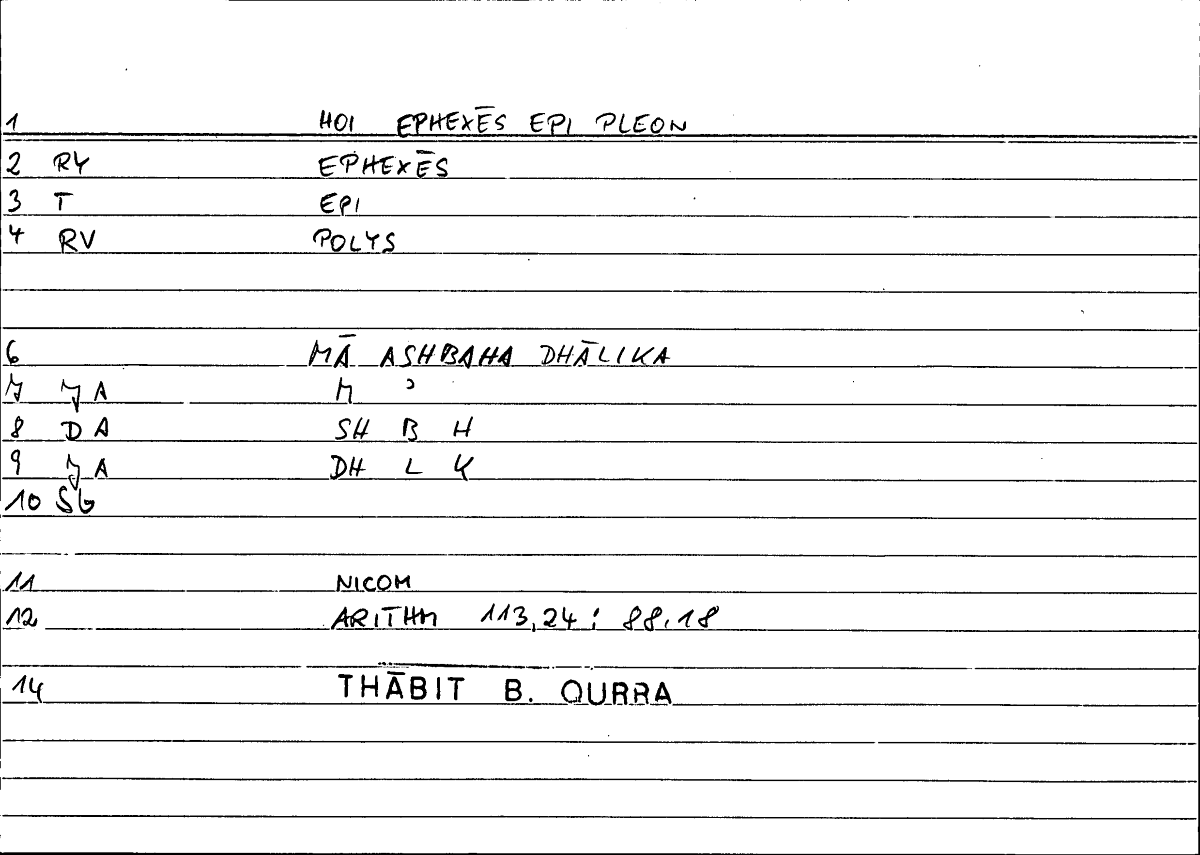 1 HOI EPHEXĒS EPI PLEON
2 RY EPHEXĒS
3 T EPI
4 RV POLYS
6 MĀ ASHBAHA DHĀLIKA
7 JA M ʾ
8 DA SH B H
9 JA DH L K
10 SG
11 NICOM
12 ARITHM 113,24 : 88.18
14 THĀBIT B. QURRA